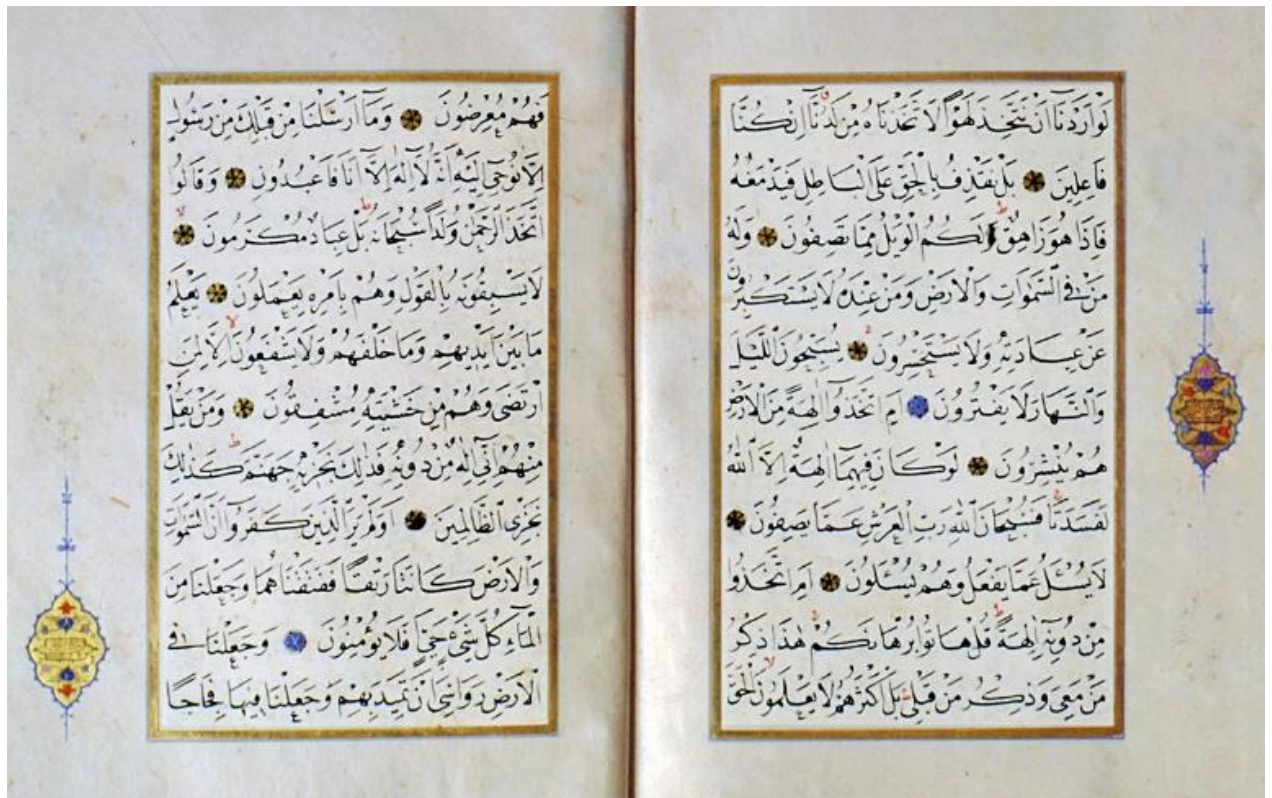 لَوْ اَرَدْنَآ اَنْ نَتَّخِذَ لَهْوًا لَا تَّخَذْنَاهُ مِنْ لَدُنَّآ اِنْ كُنَّا
فَاعِلِينَ بَلْ نَقْذِفُ بِالْحَقِّ عَلَى الْبَاطِلِ فَيَدْمَغُهُ
فَاِذَا هُوَ زَاهِقٌ وَلَكُمُ الْوَيْلُ مِمَّا تَصِفُونَ وَلَهُ
مَنْ فِى السَّمٰوَاتِ وَالْاَرْضِ وَمَنْ عِنْدَهُ لَا يَسْتَكْبِرُونَ
عَنْ عِبَادَتِهِ وَلَا يَسْتَحْسِرُونَ يُسَبِّحُونَ الَّيْلَ
وَالنَّهَارَ لَا يَفْتُرُونَ اَمِ اتَّخَذُوٓا اٰلِهَةً مِنَ الْاَرْضِ
هُمْ يُنْشِرُونَ لَوْ كَانَ فِيهِمَآ اٰلِهَةٌ اِلَّا اللّٰهُ
لَفَسَدَتَا فَسُبْحَانَ اللّٰهِ رَبِّ الْعَرْشِ عَمَّا يَصِفُونَ
لَا يُسْئَلُ عَمَّا يَفْعَلُ وَهُمْ يُسْئَلُونَ اَمِ اتَّخَذُوا
مِنْ دُونِهِٓ اٰلِهَةً قُلْ هَاتُوا بُرْهَانَكُمْ هٰذَا ذِكْرُ
مَنْ مَعِىَ وَذِكْرُ مَنْ قَبْلِى بَلْ اَكْثَرُهُمْ لَا يَعْلَمُونَ الْحَقَّ
فَهُمْ مُعْرِضُونَ وَمَآ اَرْسَلْنَا مِنْ قَبْلِكَ مِنْ رَسُولٍ
اِلَّا نُوحِىٓ اِلَيْهِ اَنَّهُ لَآ اِلٰهَ اِلَّآ اَنَا فَاعْبُدُونِ وَقَالُوا
اتَّخَذَ الرَّحْمٰنُ وَلَدًا سُبْحَانَهُ بَلْ عِبَادٌ مُكْرَمُونَ
لَا يَسْبِقُونَهُ بِالْقَوْلِ وَهُمْ بِاَمْرِهِ يَعْمَلُونَ يَعْلَمُ
مَا بَيْنَ اَيْدِيهِمْ وَمَا خَلْفَهُمْ وَلَا يَشْفَعُونَ اِلَّا لِمَنِ
ارْتَضٰى وَهُمْ مِنْ خَشْيَتِهِ مُشْفِقُونَ وَمَنْ يَقُلْ
مِنْهُمْ اِنِّىٓ اِلٰهٌ مِنْ دُونِهِ فَذٰلِكَ نَجْزِيهِ جَهَنَّمَ كَذٰلِكَ
نَجْزِى الظَّالِمِينَ اَوَلَمْ يَرَ الَّذِينَ كَفَرُوٓا اَنَّ السَّمٰوَاتِ
وَالْاَرْضَ كَانَتَا رَتْقًا فَفَتَقْنَاهُمَا وَجَعَلْنَا مِنَ
الْمَآءِ كُلَّ شَىْءٍ حَىٍّ اَفَلَا يُؤْمِنُونَ وَجَعَلْنَا فِى
الْاَرْضِ رَوَاسِىَ اَنْ تَمِيدَ بِهِمْ وَجَعَلْنَا فِيهَا فِجَاجًا